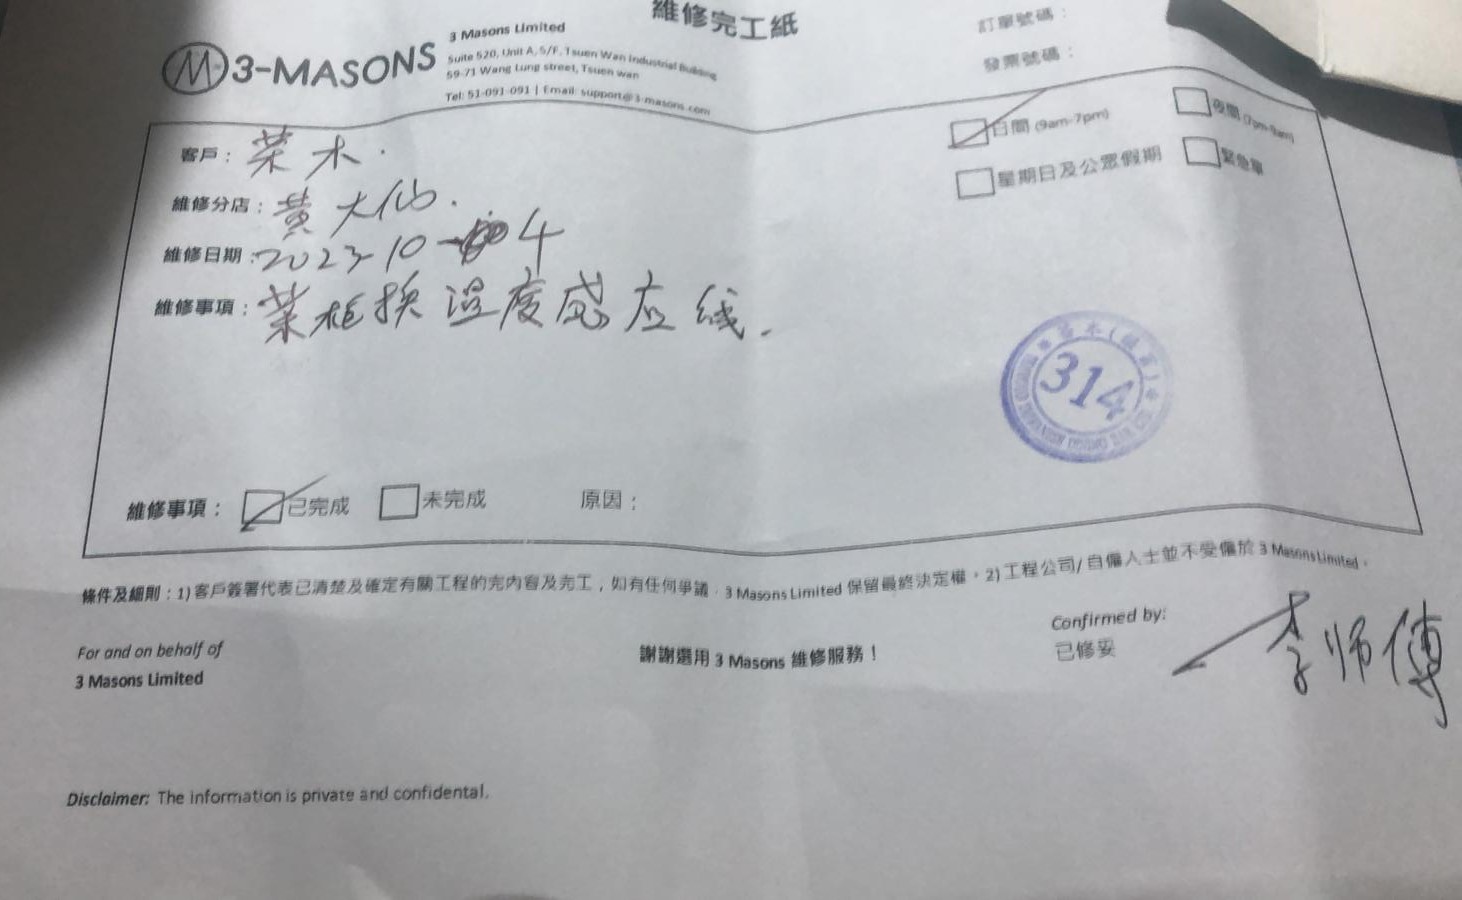 維修完工紙
訂單號碼：
發票號碼：
3-MASONS
3 Masons Limited
Suite 520, Unit A, 5/F, Tsuen Wan Industrial Building
59-71 Wang Lung street, Tsuen wan
Tel: 51-091-091 | Email: support@3-masons.com
日間 (9am-7pm)
夜間 (7pm-9am)
星期日及公眾假期
緊急單
客戶：菜木.
維修分店：黃大仙.
維修日期：2023-10-4
維修事項：菜柜換湿度感应线.
314
維修事項：
已完成
未完成
原因：
條件及細則：1) 客戶簽署代表已清楚及確定有關工程的完內容及完工，如有任何爭議，3 Masons Limited 保留最終決定權。2) 工程公司/ 自僱人士並不受僱於 3 Masons Limited。
For and on behalf of
3 Masons Limited
謝謝選用 3 Masons 維修服務！
Confirmed by:
已修妥
李师傅
Disclaimer: The information is private and confidental.